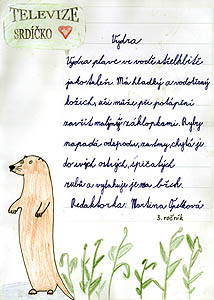 TELEVIZE
SRDÍČKO
Vydra
Vydra plave ve vodě
jako tuleň. Má hladký a vodotěsný
kožich, uši může při potápění
zavřít malými záklopkami. Ryby
napadá odspodu, zezadu, chytá je
do svých ostrých, špičatých
zubů a vytahuje je na břeh.
Redaktorka: Martina
3. ročník